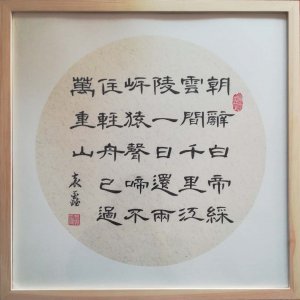 朝辭白帝綵
雲間千里江
陵一日還兩
岍猿聲啼不
住輕舟已過
萬重山